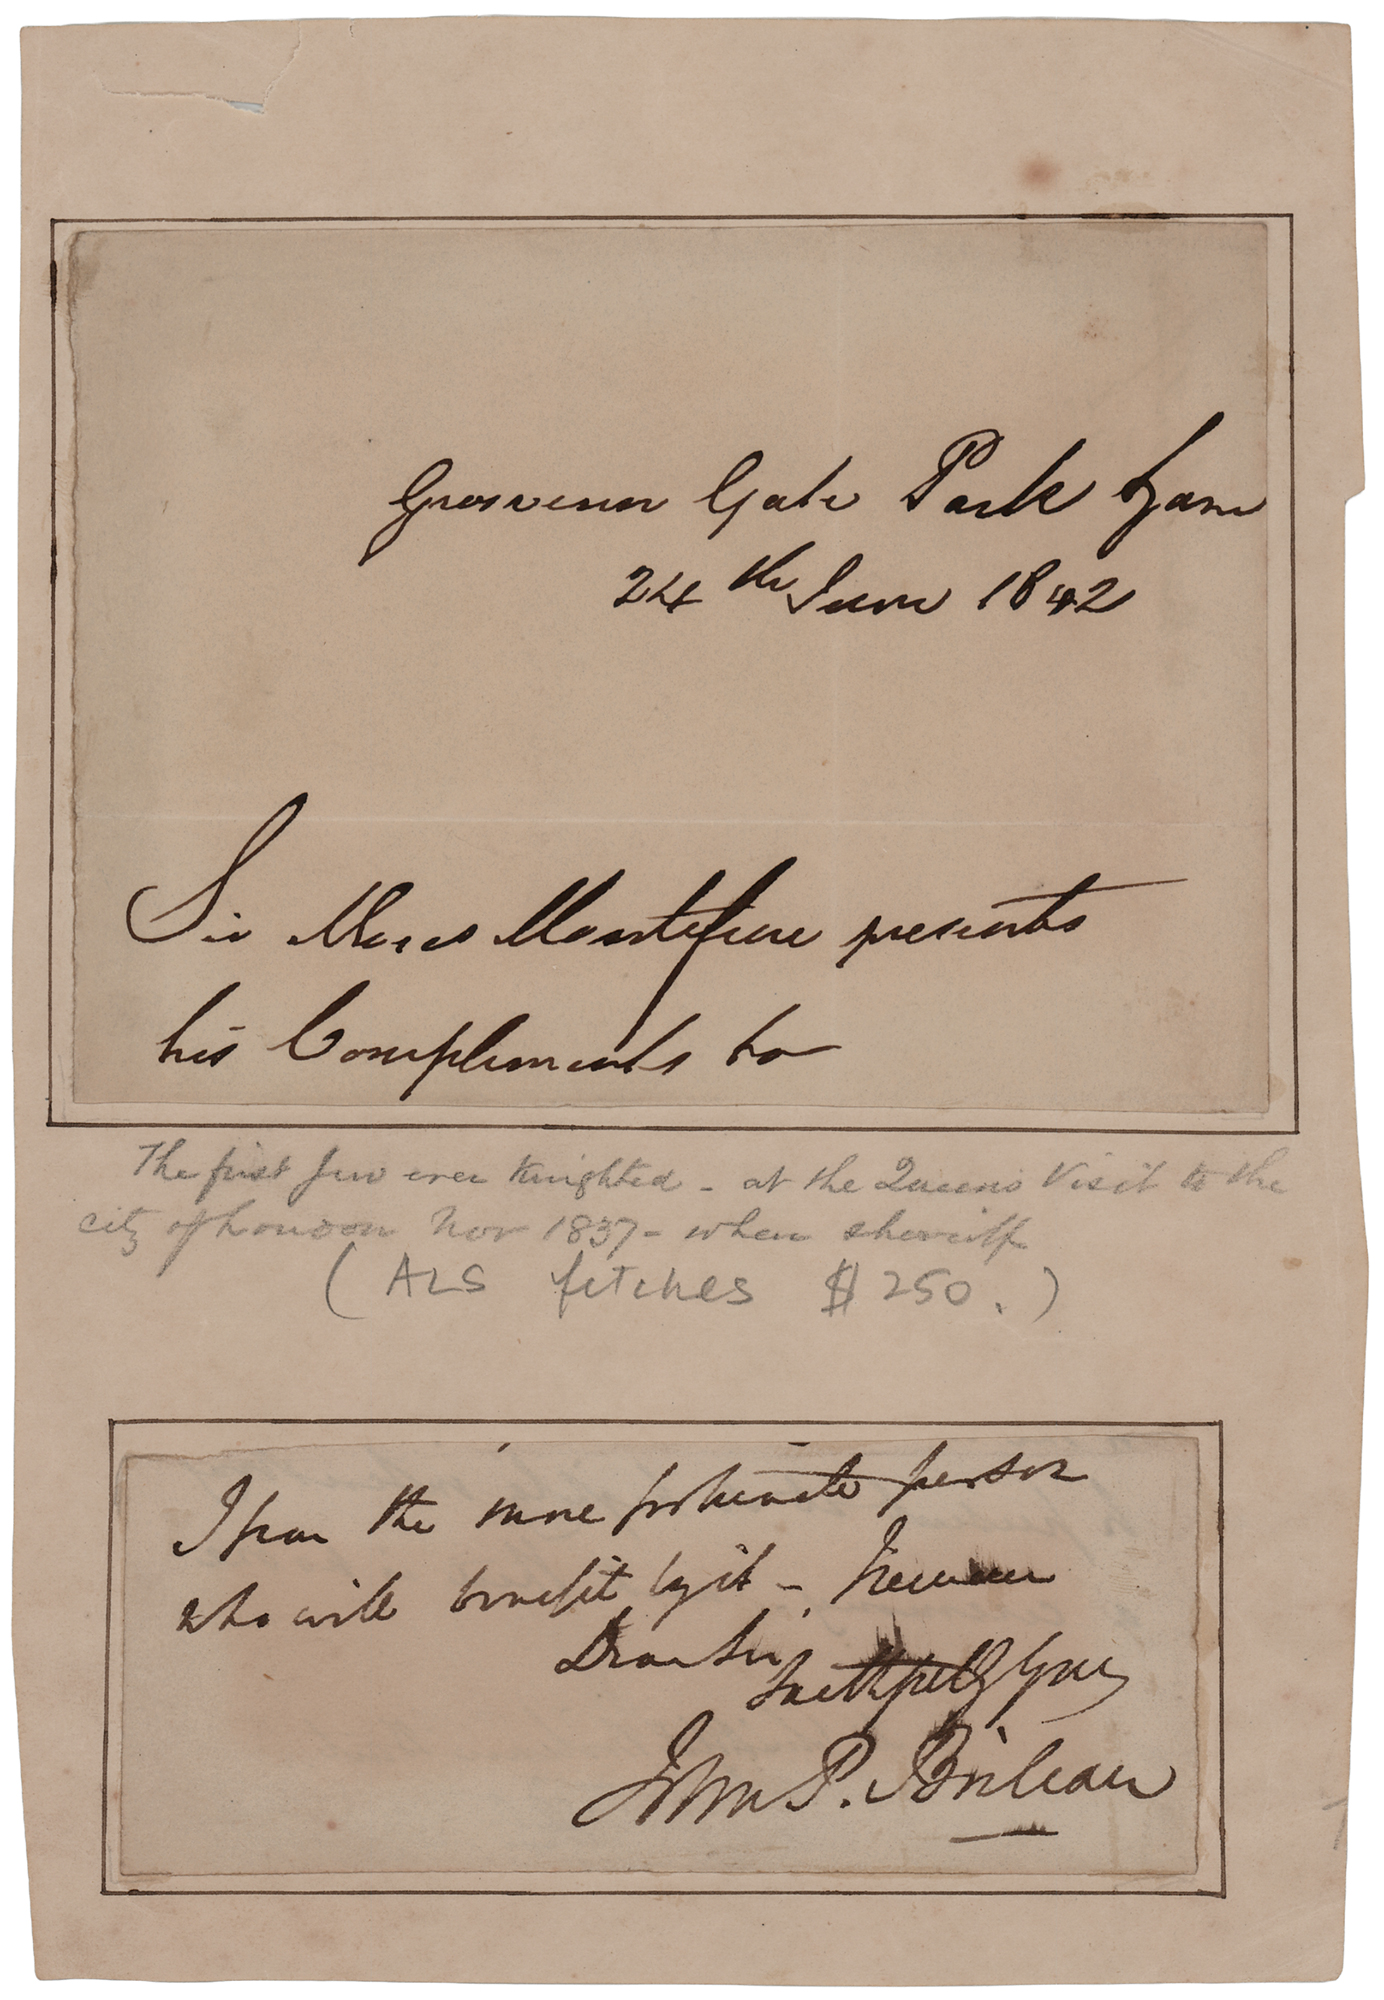 Grosvenor Gate Park Lane
24th June 1842
Sir Moses Montefiore presents
his Compliments to
The first Jew ever Knighted - at the Queens Visit to the
city of London Nov 1837 - when sheriff
(ALS fetches $250.)
the more fortunate person
who will benefit by it -
Dear Sir,
Faithfully Yours
John P. Boileau